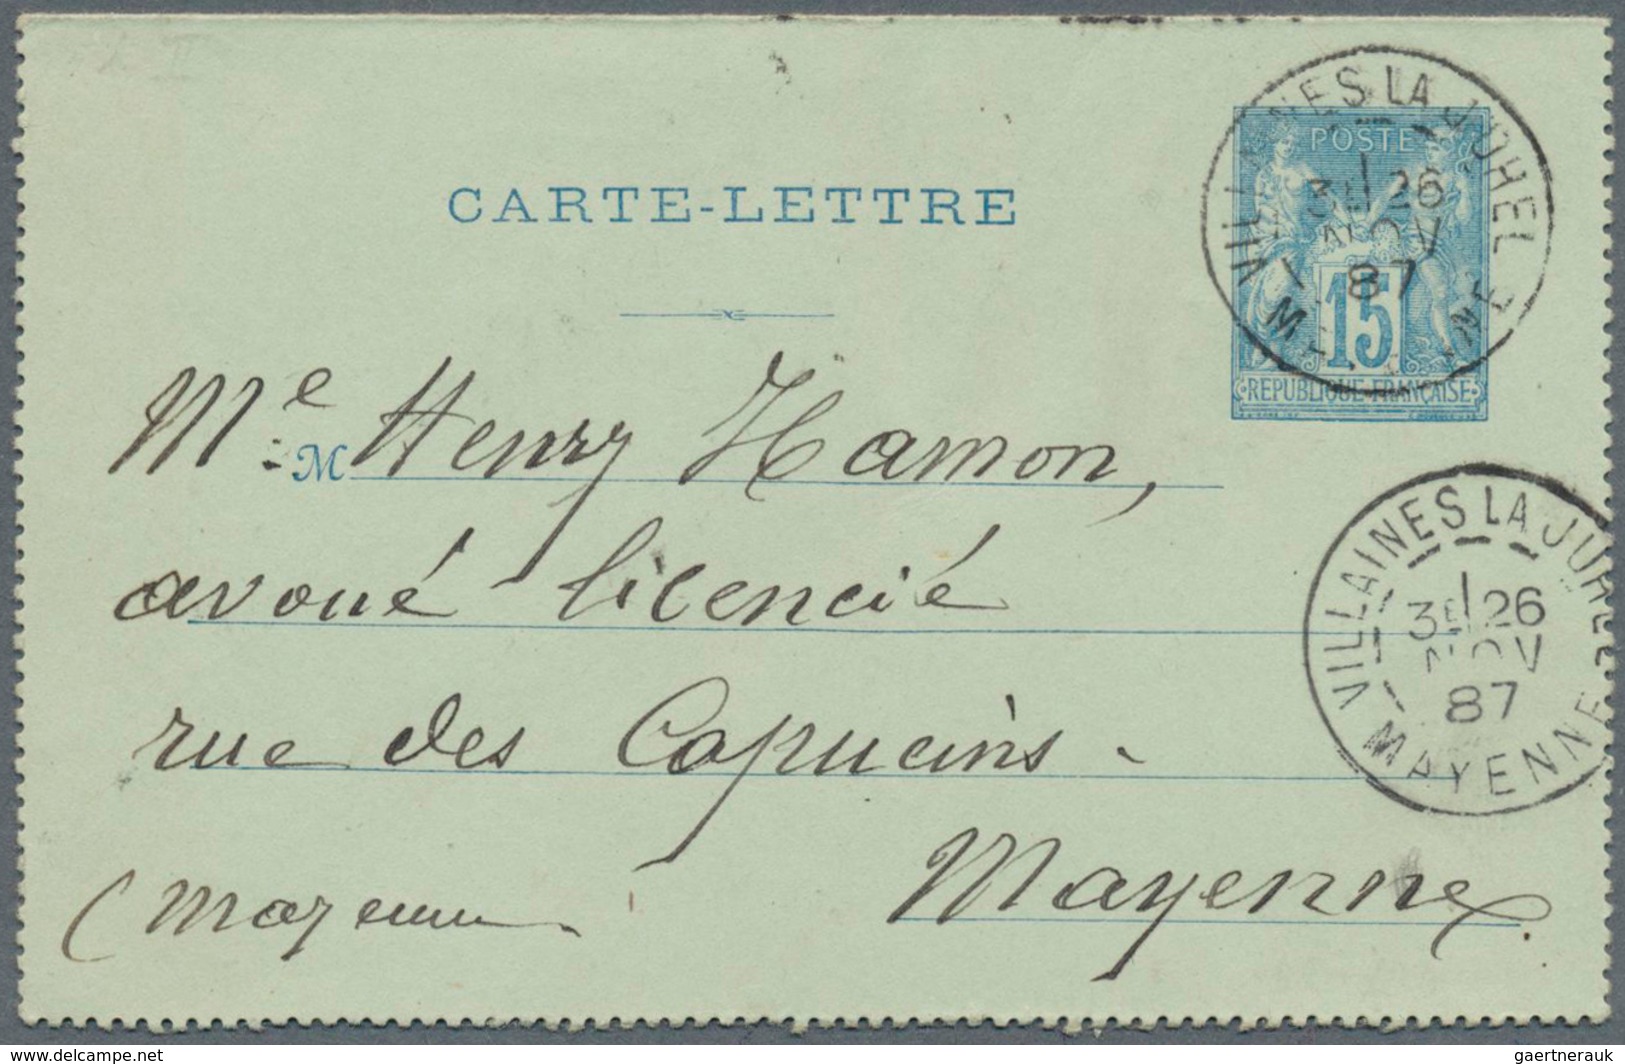 CARTE-LETTRE
VILLAINES LA JUHEL
POSTE
3E 26
NOV
87
15
MAYENNE
REPUBLIQUE FRANÇAISE
Me M Henry Hamon,
avoué licencié
rue des Capucins.
Mayenne.
(Mayenne
VILLAINES LA JUHEL
3E 26
NOV
87
MAYENNE
www.delcampe.net
gaertnerauk